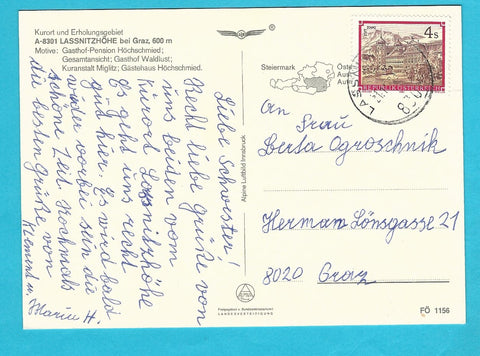 Kurort und Erholungsgebiet
A-8301 LASSNITZHÖHE bei Graz, 600 m
Motive: Gasthof-Pension Höchschmied;
Gesamtansicht; Gasthof Waldlust;
Kuranstalt Miglitz; Gästehaus Höchschmied.
Liebe Schwester!
Recht liebe Grüße von
uns beiden vom
Kurort Lassnitzhöhe
Es geht uns recht
gut hier. Es wird bald
wieder vorbei sein die
schöne Zeit. Nochmals
die besten Grüße von
Klement u.
H.
Alpine Luftbild Innsbruck
Steiermark
4s
REPUBLIK ÖSTERREICH
An Frau
Berta Ogroschnik
Herman Lönsgasse 21
8020 Graz
Freigegeben v. Bundesministerium
LANDESVERTEIDIGUNG
FÖ 1156